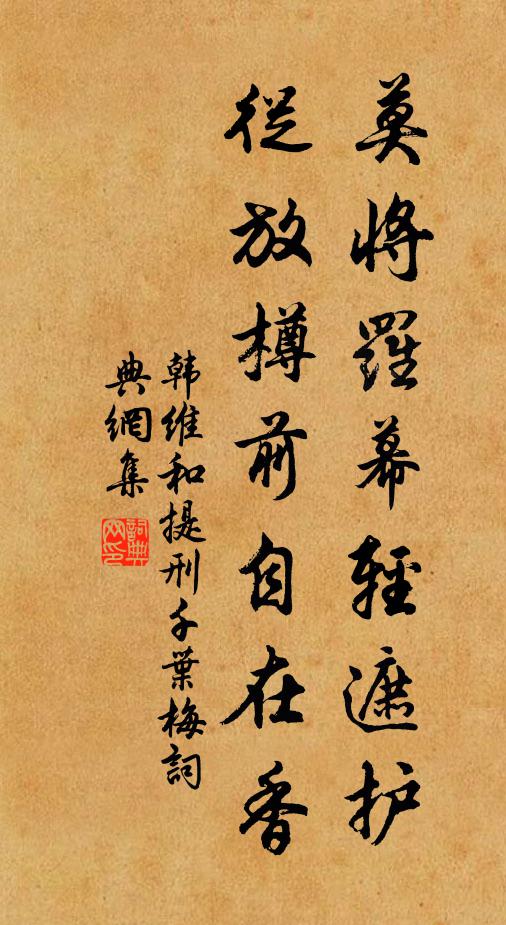 莫將羅幕輕遮护
從放樽前自在香
韩維和提刑千葉梅詞
典網集
詞典网印